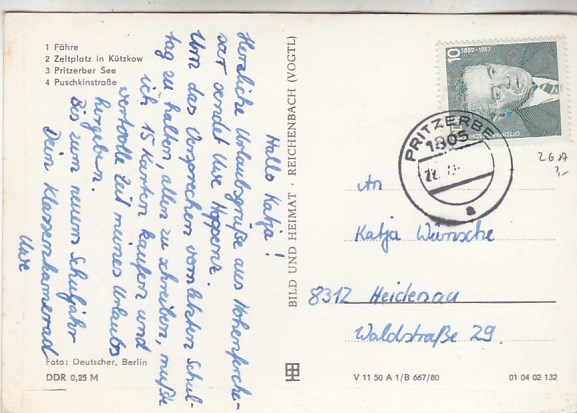 1 Fähre
2 Zeltplatz in Kützkow
3 Pritzerber See
4 Puschkinstraße
Hallo Katja!
Herzliche Urlaubsgrüße aus Hohenferche-
sar sendet Uwe
Um das Versprechen vom letzten Schul-
tag zu halten, allen zu schreiben, mußte
ich 15 Karten kaufen und
wertvolle Zeit meines Urlaubs
hergeben.
Bis zum neuen Schuljahr
Dein Klassenkamerad
Uwe
Foto: Deutscher, Berlin
DDR 0,25 M
BILD UND HEIMAT · REICHENBACH (VOGTL)
10
1882-1967
PRITZERBE
1805
a
26A
3,-
An
Katja Wünsche
8312 Heidenau
Waldstraße 29.
V 11 50 A 1/B 667/80
01 04 02 132